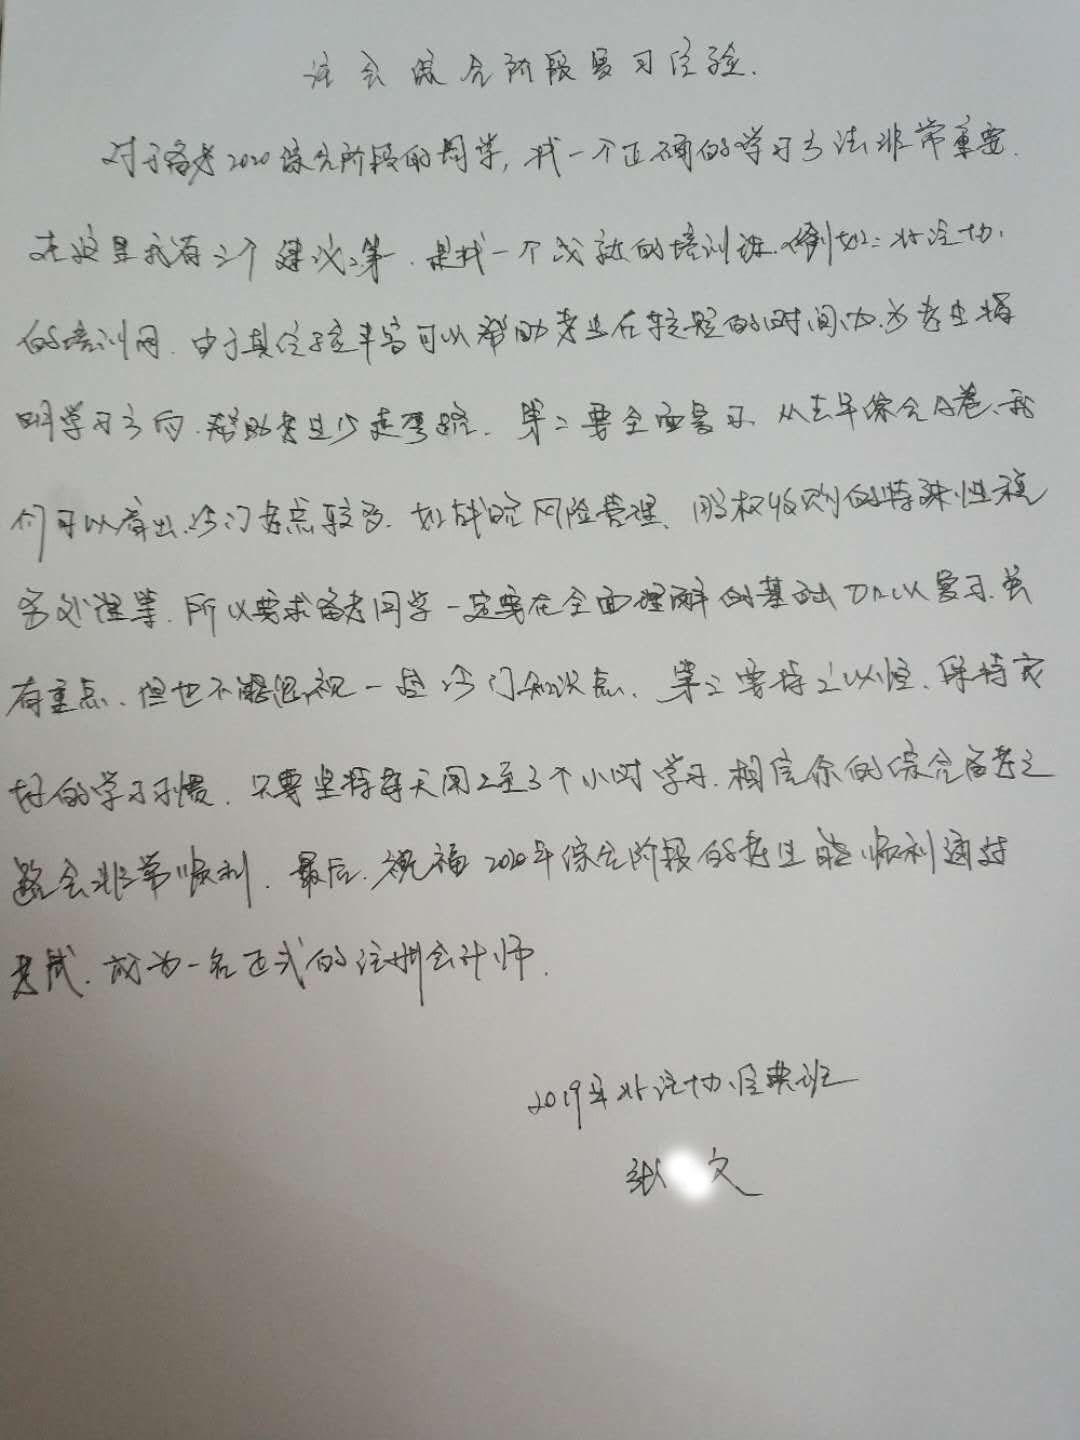 注会综合阶段复习经验.
对于备考2020综合阶段的同学,找一个正确的学习方法非常重要.
在这里我有三个建议:第一.是找一个成熟的培训班.例如:北注协.
的培训网.由于其经验丰富可以帮助考生节较短的时间内.为考生指
明学习方向.帮助考生少走弯路.第二要全面复习.从去年综合A卷、我
们可以看出.冷门考点较多.如战略风险管理、股权收购的特殊性税
务处理等.所以要求备考同学一定要在全面理解的基础加以复习.虽
有重点、但也不能忽视一些冷门知识点.第三要持之以恒、保持良
好的学习习惯.只要坚持每天用2至3个小时学习.相信你的综合备考之
路会非常顺利.最后.祝福2020年综合阶段的考生能顺利通过
考试.成为一名正式的注册会计师.
2019年北注协经典班
张 文